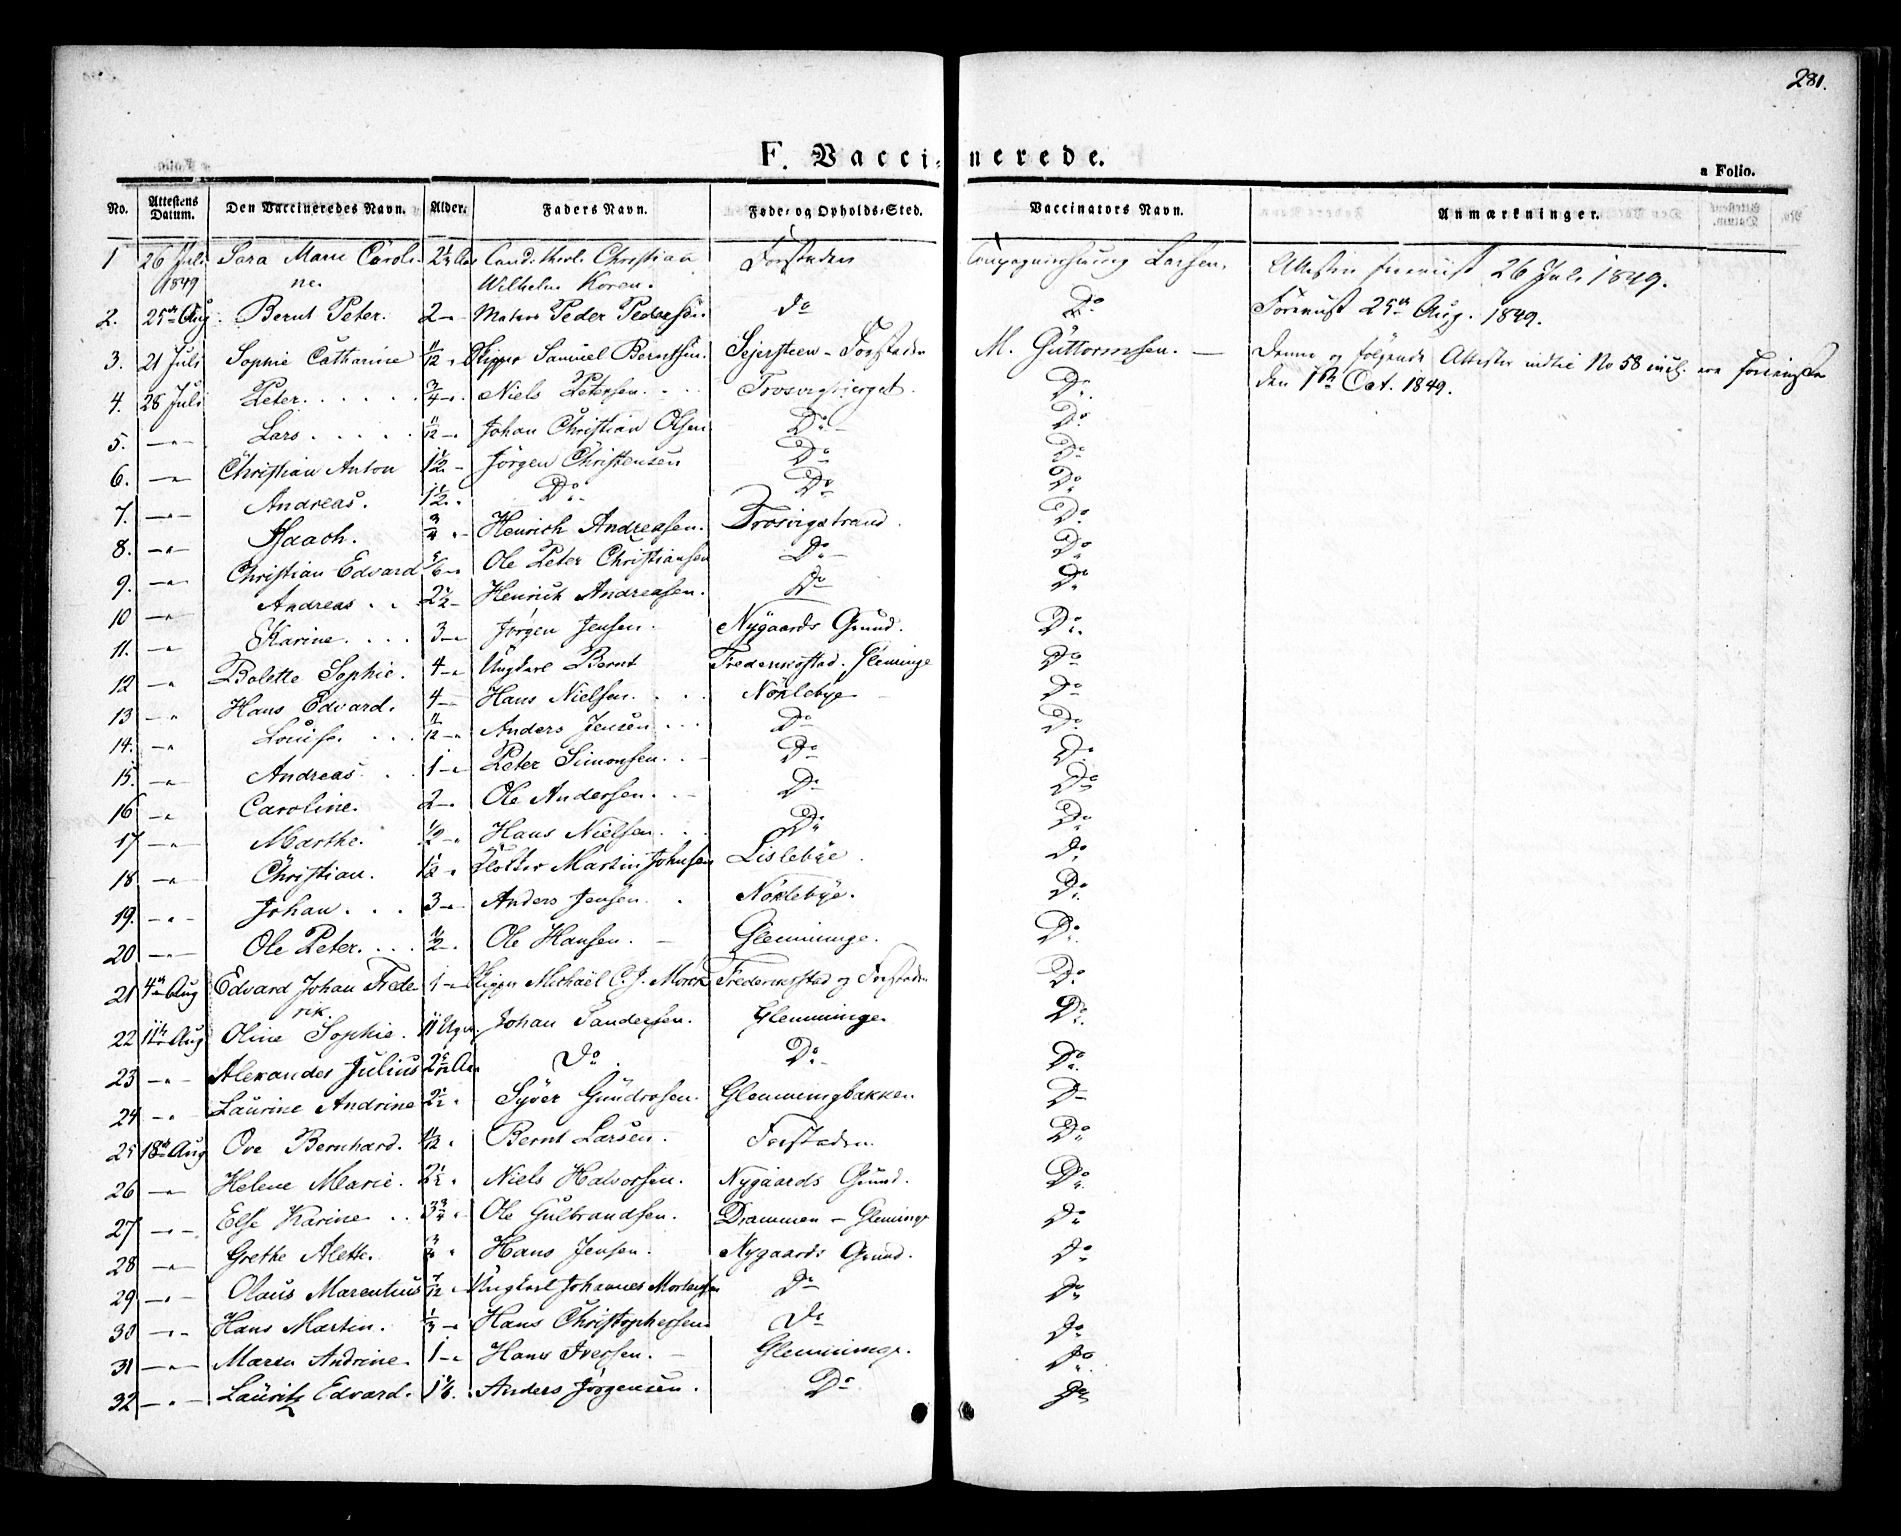 281.
F. Vaccinerede.
a Folio.
No. Attestens Datum. Den Vaccineredes Navn. Alder. Faders Navn. Føde- og Opholds-Sted. Vaccinators Navn. Anmærkninger.
1 26 Juli 1849 Sara Marie Caroline. 2½ Aar Cand. theol. Christian Wilhelm Koren. Forstaden Larsen. Attesten foreviist 26 Juli 1849.
2. 25de Aug. Bernt Peter. 2 — Matros Peder Pedersen. do Do Foreviist 25de Aug. 1849.
3. 21 Juli Sophie Cathrine 11/12 " Skipper Samuel Berntsen. Sejersteen - Forstaden M. Guttormsen. — Denne og følgende Attester indtil No 58 incl. ere foreviste den 1ste Oct. 1849.
4. 28 Juli Peter. . . . . . ¾ —" Niels Petersen. Trosvigbjerget. Do
5. —"— Lars . . . . . 11/12 —" Johan Christian Olsen Do — Do
6. —"— Christian Anton 1½ — Jørgen Christensen Do Do
7. —"— Andreas. 1½ " Do Do Do
8. —"— Isaach. ¾ " Henrich Andreasen. Trosvigstrand. Do
9. —"— Christian Edvard 5/6 —" Ole Peter Christiansen Do — Do
10 —"— Andreas . . 2½ — Henrich Andreasen. Do Do
11. —"— Karine. . . . 3 —" Jørgen Jensen. Nygaards Grund. Do
12 —"— Bolette Sophie. 4 —" Ungkarl Bernt Frederikstad. Gleminge Do
13 —"— Hans Edvard. 4 — Hans Nielsen. . . Nøklebye Do
14. —"— Louise. . . . 11/12 —" Anders Jensen . . . Do Do
15. —"— Andreas . . 1 —" Peter Simonsen. . — Do Do
16 —"— Caroline. 2 —" Ole Andersen. . — Do Do
17 —"— Marthe. ½ —" Hans Nielsen. . . Do Do
18 —"— Christian. " Martin Johnsen Lislebye. Do
19. —"— Johan. . . . 3 —" Anders Jensen. . Nøklebye. Do
20 —"— Ole Peter. . . . ½ —" Ole Hansen. — Glemminge. Do
21 4de Aug Edvard Johan Frederik. 1 —" Skipper Michaël C. J. Morck Frederikstad og Forstaden Do
22 11te Aug Oline Sophie. 11 Uger. Johan Sandersen. Glemminge Do
23 —"— Alexander Julius Aar Do Do — Do
24 —"— Laurine Andrine 2½ " Syver Gundrosen. Glemmingbakken Do
25 18de Aug Ove Bernhard. " Bernt Larsen. — Forstaden Do
26 —"— Helene Marie. 2½ " Niels Halvorsen. Nygaards Grund. Do
27 —"— Else Karine . . 3¾ " Ole Gulbrandsen. Drammen — Gleminge Do
28 —"— Grethe Alette. " Hans Jensen. Nygaards Grund. Do
29 —"— Olaus Marentius 7/12 —" Ungkarl Johannes Mortensen Do Do
30 —"— Hans Martin. ⅓ —" Hans Christophersen. Do Do
31 —"— Maren Andrine. 1 —" Hans Iversen. — Glemminge. Do
32 —"— Lauritz Edvard. Anders Jørgensen. Do Do